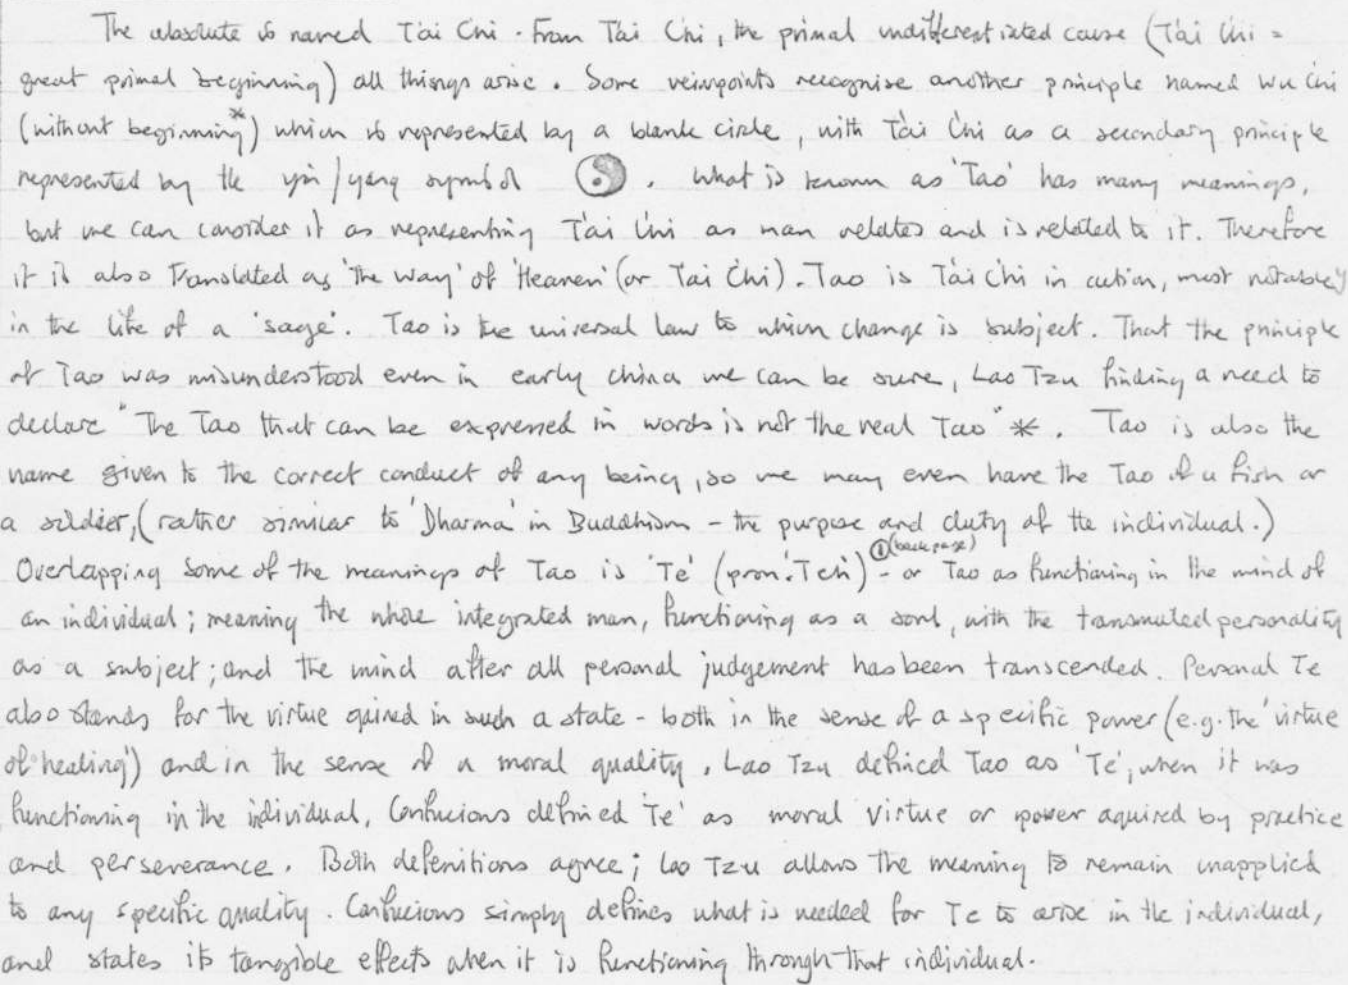 The absolute is named T'ai Chi. From T'ai Chi, the primal undifferentiated cause (T'ai Chi =
great primal beginning) all things arise. Some veiwpoints recognise another principle named Wu Chi
(without beginning*) which is represented by a blank circle, with T'ai Chi as a secondary principle
represented by the yin/yang symbol . What is known as 'Tao' has many meanings,
but we can consider it as representing T'ai Chi as man relates and is related to it. Therefore
it is also translated as 'the way' of 'Heaven' (or T'ai Chi). Tao is T'ai Chi in action, most notabley
in the life of a 'sage'. Tao is the universal law to which change is subject. That the principle
of Tao was misunderstood even in early china we can be sure, Lao Tzu finding a need to
declare "The Tao that can be expressed in words is not the real Tao" *. Tao is also the
name given to the correct conduct of any being, so we may even have the Tao of a fish or
a soldier, (rather similar to 'Dharma' in Buddhism - the purpose and duty of the individual.)
Overlapping some of the meanings of Tao is 'Te' (pron. 'Teh') ①(back page) - or Tao as functioning in the mind of
an individual; meaning the whole integrated man, functioning as a soul, with the transmuted personality
as a subject; and the mind after all personal judgement has been transcended. Personal Te
also stands for the virtue gained in such a state - both in the sense of a specific power (e.g. the 'virtue
of healing') and in the sense of a moral quality. Lao Tzu defined Tao as 'Te', when it was
functioning in the individual, Confucious defined 'Te' as moral virtue or power aquired by practice
and perseverance. Both defenitions agree; Lao Tzu allows the meaning to remain unapplied
to any specific quality. Confucious simply defines what is needed for Te to arise in the individual,
and states its tangible effects when it is functioning through that individual.